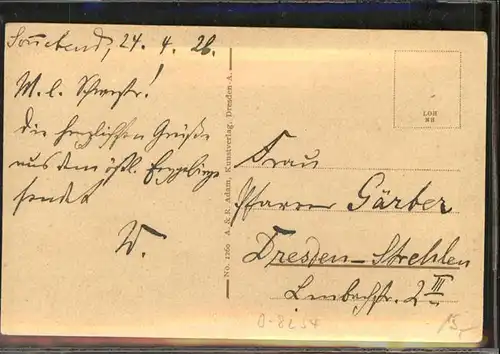 Sonnabend, 24. 4. 26.
M. l. Schwester!
Die herzlichsten Grüße
aus dem östl. Erzgebirge
sendet
W.
No. 1260 A. & R. Adam, Kunstverlag, Dresden-A.
LOH
NB
Frau
Pfarrer Gärber
Dresden-Strehlen
Lenbachstr. 2 III
0-8254